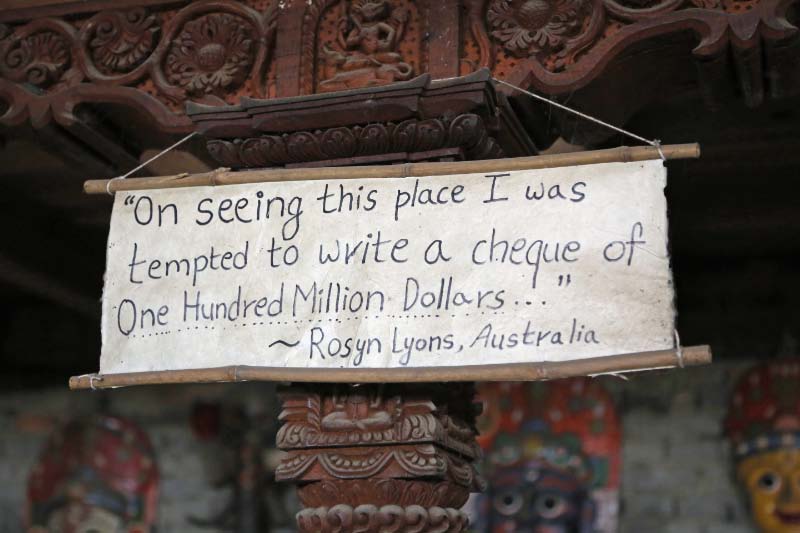 "On seeing this place I was
tempted to write a cheque of
One Hundred Million Dollars..."
~ Rosyn Lyons, Australia